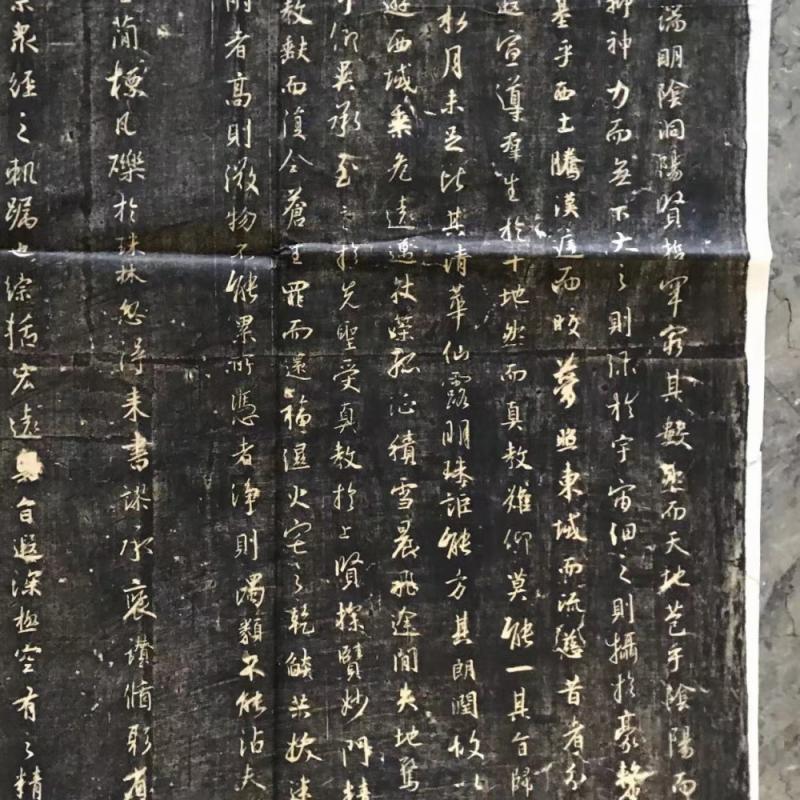 端明陰洞陽賢哲罕窮其數然而天地苞乎陰陽而
抑神力而無下大之則彌於宇宙細之則攝於豪釐
基乎西土騰漢庭而皎夢照東域而流慈昔者分
遐宣導羣生於十地然而真教難仰莫能一其旨歸
松月未足比其清華仙露明珠詎能方其朗潤故以
遊西域乘危遠邁杖策孤征積雪晨飛途閒失地驚
仰異承至言於先聖受真教於上賢探賾妙門精
教缺而復全蒼生罪而還福濕火宅之乾燄共拔迷
附者高則微物不能累所憑者淨則濁類不能沾夫
簡標瓦礫於珠林忽得來書謬承褒讚循躬省
眾經之軌躅也綜括宏遠奧旨遐深極空有之精